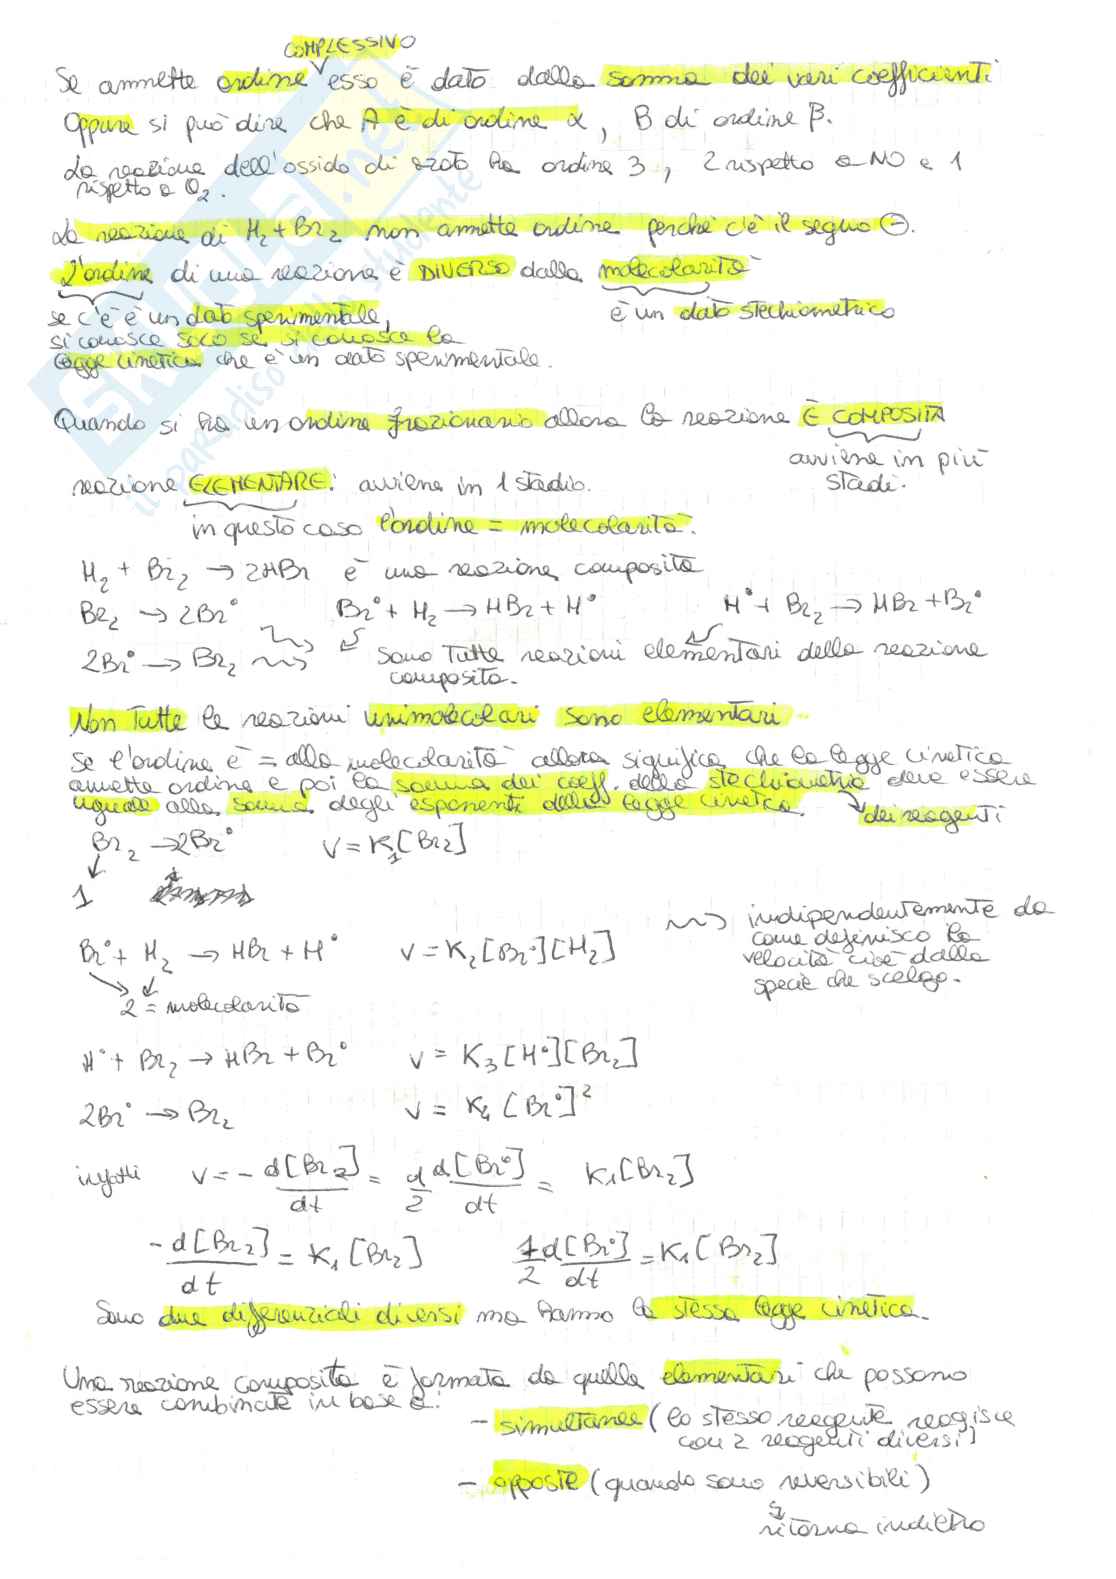 COMPLESSIVO
Se ammette ordine esso è dato dalla somma dei vari coefficienti
Oppure si può dire che A è di ordine α, B di ordine β.
La reazione dell'ossido di azoto ha ordine 3, 2 rispetto a NO e 1
rispetto a O₂.
La reazione di H₂ + Br₂ non ammette ordine perché c'è il segno ⊖.
L'ordine di una reazione è DIVERSO dalla molecolarità
se c'è è un dato sperimentale, è un dato stechiometrico
si conosce solo se si conosce la
legge cinetica che è un dato sperimentale.
Quando si ha un ordine frazionario allora la reazione È COMPOSITA
avviene in più
stadi.
reazione ELEMENTARE: avviene in 1 stadio.
in questo caso l'ordine = molecolarità.
H₂ + Br₂ → 2HBr è una reazione composita
Br₂ → 2Br° Br° + H₂ → HBr + H° H° + Br₂ → HBr + Br°
2Br° → Br₂ sono tutte reazioni elementari della reazione
composita.
Non tutte le reazioni unimolecolari sono elementari
Se l'ordine è = alla molecolarità allora significa che la legge cinetica
ammette ordine e poi la somma dei coeff. della stechiometria deve essere
uguale alla somma degli esponenti della legge cinetica. → dei reagenti
Br₂ → 2Br° V = K₁[Br₂]
1
Br° + H₂ → HBr + H° V = K₂[Br°][H₂]
2 = molecolarità
indipendentemente da
come definisco la
velocità cioè dalla
specie che scelgo.
H° + Br₂ → HBr + Br° V = K₃[H°][Br₂]
2Br° → Br₂ V = K₄[Br°]²
infatti V = - d[Br₂]/dt = 1/2 d[Br°]/dt = K₁[Br₂]
-d[Br₂]/dt = K₁[Br₂] 1/2 d[Br°]/dt = K₁[Br₂]
Sono due differenziali diversi ma hanno la stessa legge cinetica.
Una reazione composita è formata da quelle elementari che possono
essere combinate in base a:
- simultanee (lo stesso reagente reagisce
con 2 reagenti diversi)
- opposte (quando sono reversibili)
ritorna indietro
skuola.net
il paradiso dello studente